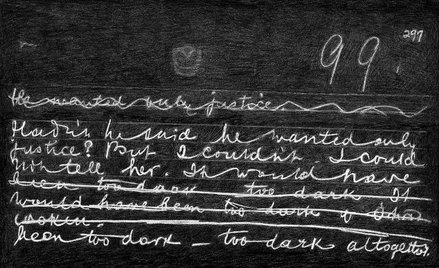 297
99
He wanted only justice
Hadn't he said he wanted only
justice? But I couldn't. I could
not tell her. It would have
been too dark – too dark. It
would have been too dark
been too dark – too dark altogether.